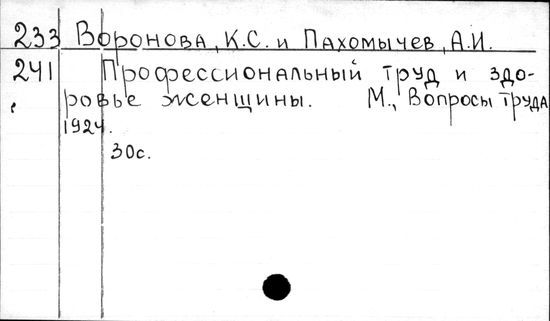 233 Воронова, К.С. и Пахомычев, А.И.
241 Профессиональный труд и здо-
ровье женщины. М., Вопросы труда
1924.
30с.